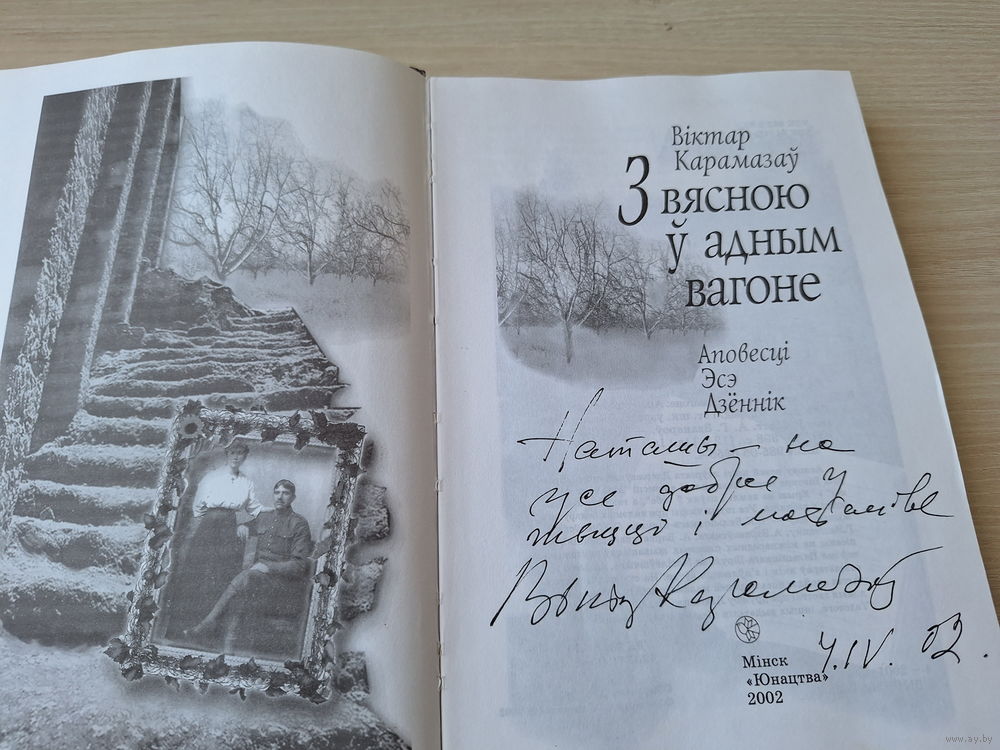 Віктар
Карамазаў
З вясною
ў адным
вагоне
Аповесці
Эсэ
Дзённік
Наташы – на
усе добрае у
жыцці і
Віктар Карамазаў
4.IV. 02.
Мінск
«Юнацтва»
2002
www.ay.by